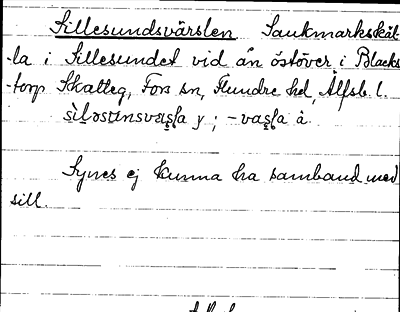 Sillesundsvärslen Sankmarkskäl-
-la i Sillesundet vid ån östöver i Blacks-
-torp Skatteg, Fors sn, Flundre hd, Älfsb. l.
Synes ej kunna ha samband med
sill.